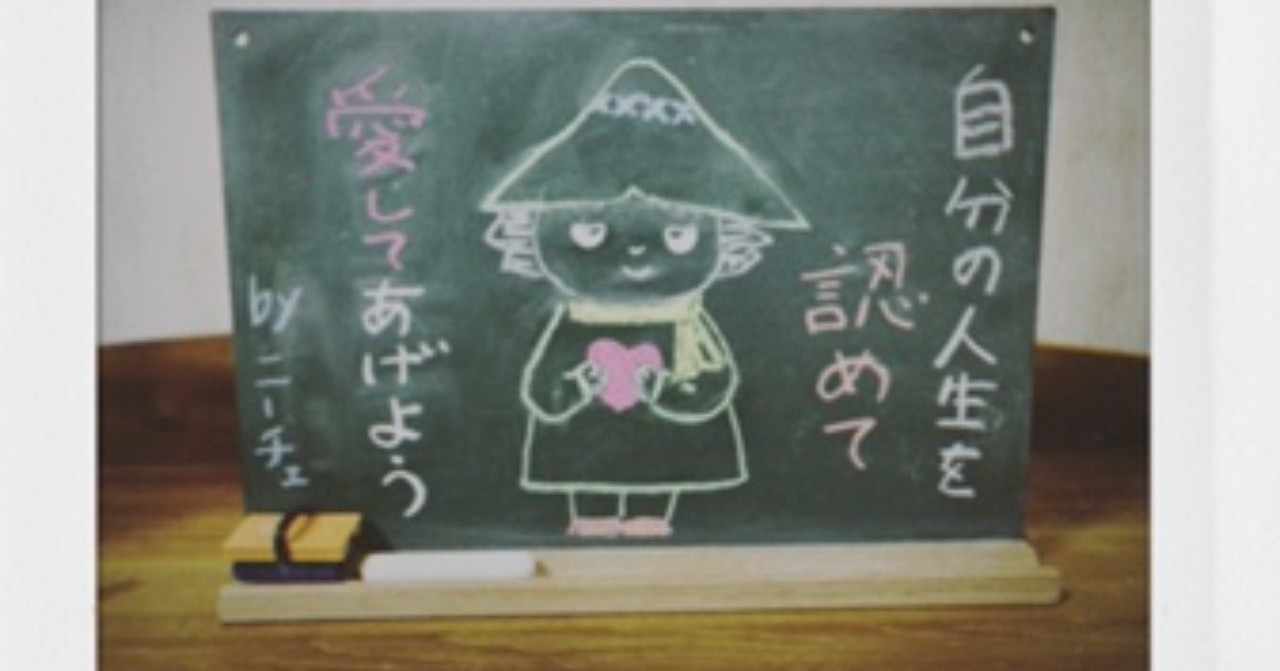 自分の人生を
認めて
愛してあげよう
by ニーチェ